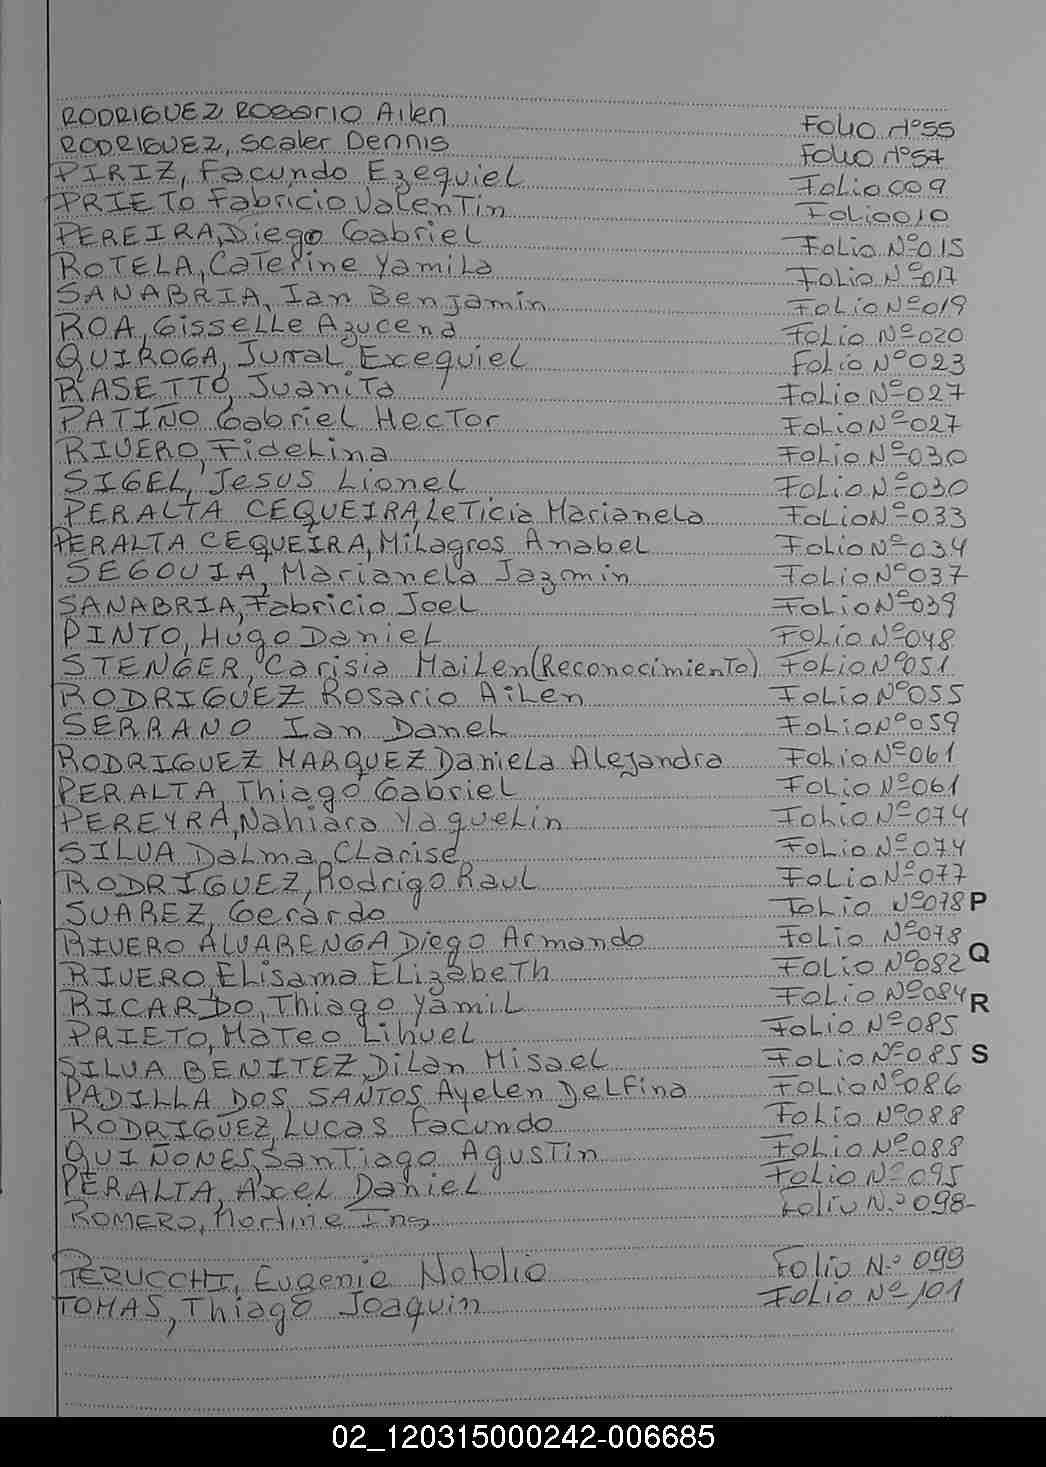 RODRIGUEZ ROSARIO Ailen Folio N°55
RODRIGUEZ, Scaler Dennis Folio N°57
PIRIZ, Facundo Ezequiel Folio 009
PRIETO Fabricio Valentin Folio 010
PEREIRA, Diego Gabriel Folio Nº 015
ROTELA, Caterine Yamila Folio Nº 017
SANABRIA, Ian Benjamin Folio Nº 019
ROA, Gisselle Azucena Folio Nº 020
QUIROGA, Exequiel Folio Nº 023
RASETTO, Juanita Folio Nº 027
PATIÑO Gabriel Hector Folio Nº 027
RIVERO, Fidelina Folio Nº 030
SIGEL, Jesus Lionel Folio Nº 030
PERALTA CEQUEIRA, Leticia Marianela Folio Nº 033
PERALTA CEQUEIRA, Milagros Anabel Folio Nº 034
SEGOVIA, Marianela Jazmin Folio Nº 037
SANABRIA, Fabricio Joel Folio Nº 039
PINTO, Hugo Daniel Folio Nº 048
STENGER, Carisia Mailen (Reconocimiento) Folio Nº 051
RODRIGUEZ Rosario Ailen Folio Nº 055
SERRANO Ian Danel Folio Nº 059
RODRIGUEZ MARQUEZ Daniela Alejandra Folio Nº 061
PERALTA, Thiago Gabriel Folio Nº 061
PEREYRA, Nahiara Yaquelin Folio Nº 074
SILVA Dalma Clarise Folio Nº 074
RODRIGUEZ, Rodrigo Raul Folio Nº 077
SUAREZ, Gerardo Folio Nº 078 P
RIVERO ALVARENGA Diego Armando Folio Nº 078
RIVERO, Elisama Elizabeth Folio Nº 082 Q
RICARDO, Thiago Yamil Folio Nº 084 R
PRIETO, Mateo Lihuel Folio Nº 085
SILVA BENITEZ, Dilan Misael Folio Nº 085 S
PADILLA DOS SANTOS Ayelen Delfina Folio Nº 086
RODRIGUEZ, Lucas Facundo Folio Nº 088
QUIÑONES, Santiago Agustin Folio Nº 088
PERALTA, Axel Daniel Folio Nº 095
ROMERO, Folio N.º 098-
PERUCCHI, Eugenie Natalio Folio N.º 099
TOMAS, Thiago Joaquin Folio Nº 101
02_120315000242-006685